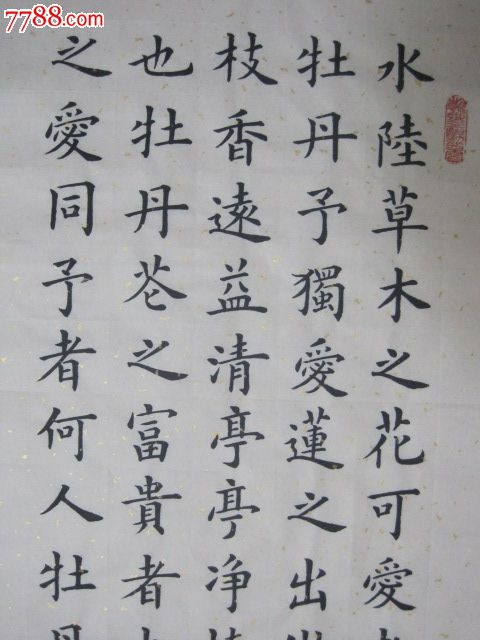 7788.com
水陸草木之花可愛
牡丹予獨愛蓮之出
枝香遠益清亭亭净
也牡丹花之富貴者
之愛同予者何人牡丹